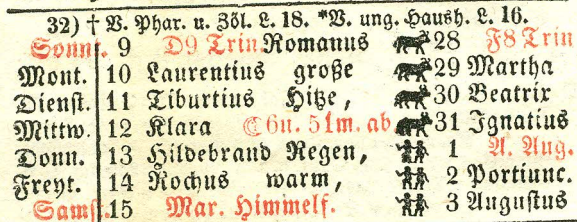 32) † V. Phar. u. Zöl. L. 18. *V. ung. Haush. L. 16.
Sonnt. 9 D9 Trin. Romanus 28 F8 Trin
Mont. 10 Laurentius große 29 Martha
Dienst. 11 Tiburtius Hitze, 30 Beatrix
Mittw. 12 Klara ☾6u. 51m. ab 31 Ignatius
Donn. 13 Hildebrand Regen, 1 A. Aug.
Freyt. 14 Rochus warm, 2 Portiunc.
Samst. 15 Mar. Himmelf. 3 Augustus